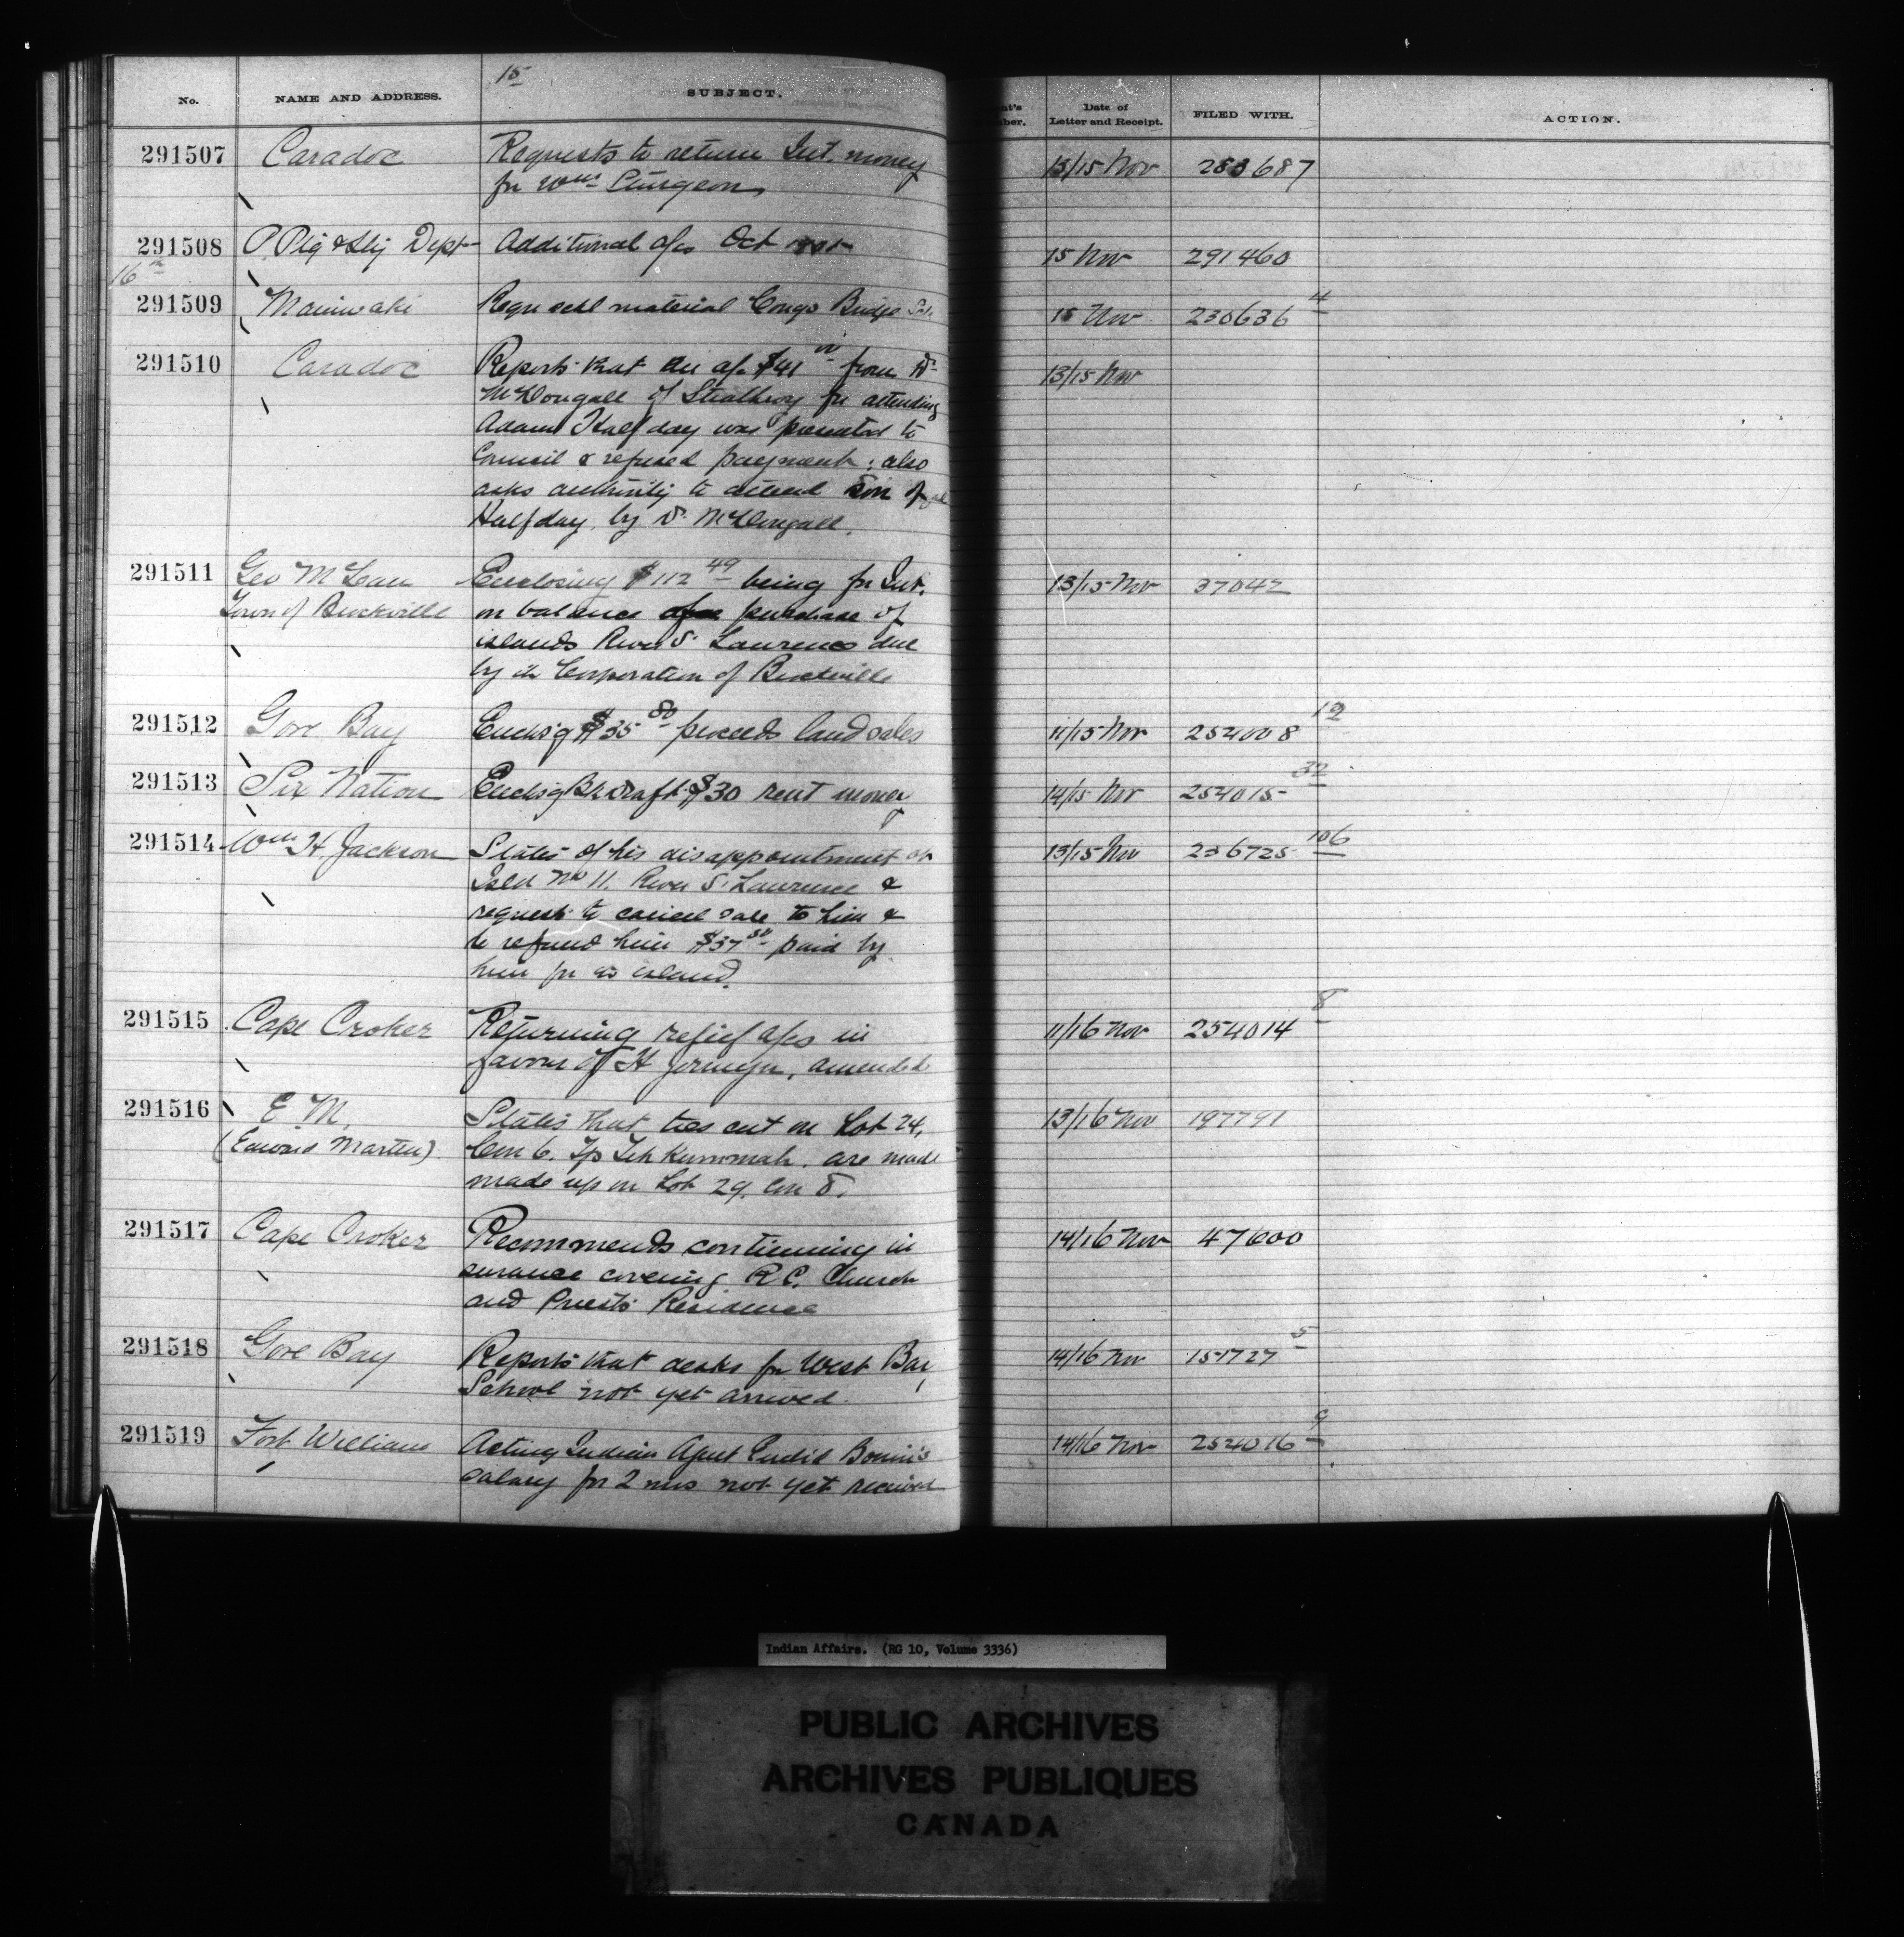 15
No. NAME AND ADDRESS. SUBJECT. Date of Letter and Receipt. FILED WITH. ACTION.
291507 Caradoc Requests to return Int. money 13/15 Nov 283687
for Wm Sturgeon
291508 Dept Additional a/cs Oct 15 Nov 291460
16th
291509 Maniwaki material Congo Bridge 15 Nov 230636 4
291510 Caradoc Reports that an a/c $41 00 from Dr 13/15 Nov
McDougall of Strathroy for attending
Adam Halfday was presented to
Council & refused payment; also
asks authority to attend son of
Halfday, by Dr McDougall.
291511 Geo McLean Enclosing $112 49 being for Int. 13/15 Nov 37042
Town of Brockville on balance purchase of
islands River St Lawrence due
by the Corporation of Brockville
291512 Gore Bay Enclos'g $35 80 proceeds land sales 11/15 Nov 254008 12
291513 Six Nation Enclos'g Bk draft $30 rent money 14/15 Nov 254015 32
291514 Wm H. Jackson States of his disappointment 13/15 Nov 236725 106
Isld No 11. River St Lawrence &
request to cancel sale to him &
to refund him $37 50 paid by
him for island.
291515 Cape Croker Returning relief a/cs in 11/16 Nov 254014 8
favour of H Jermyn, amended
291516 E M. States that ties cut on Lot 24, 13/16 Nov 197791
(Edward Martin) Con 6. Tp Tehkummah. are made
made up on Lot 29. Con 8.
291517 Cape Croker Recommends continuing in 14/16 Nov 47600
surance covering R C. Church
and Priests Residence
291518 Gore Bay Reports that desks for West Bay 14/16 Nov 151727 5
School not yet arrived.
291519 Fort William Acting Indian Agent Euclid Bonin's 14/16 Nov 254016 9
salary for 2 mos not yet received
Indian Affairs. (RG 10, Volume 3336)
PUBLIC ARCHIVES
ARCHIVES PUBLIQUES
CANADA